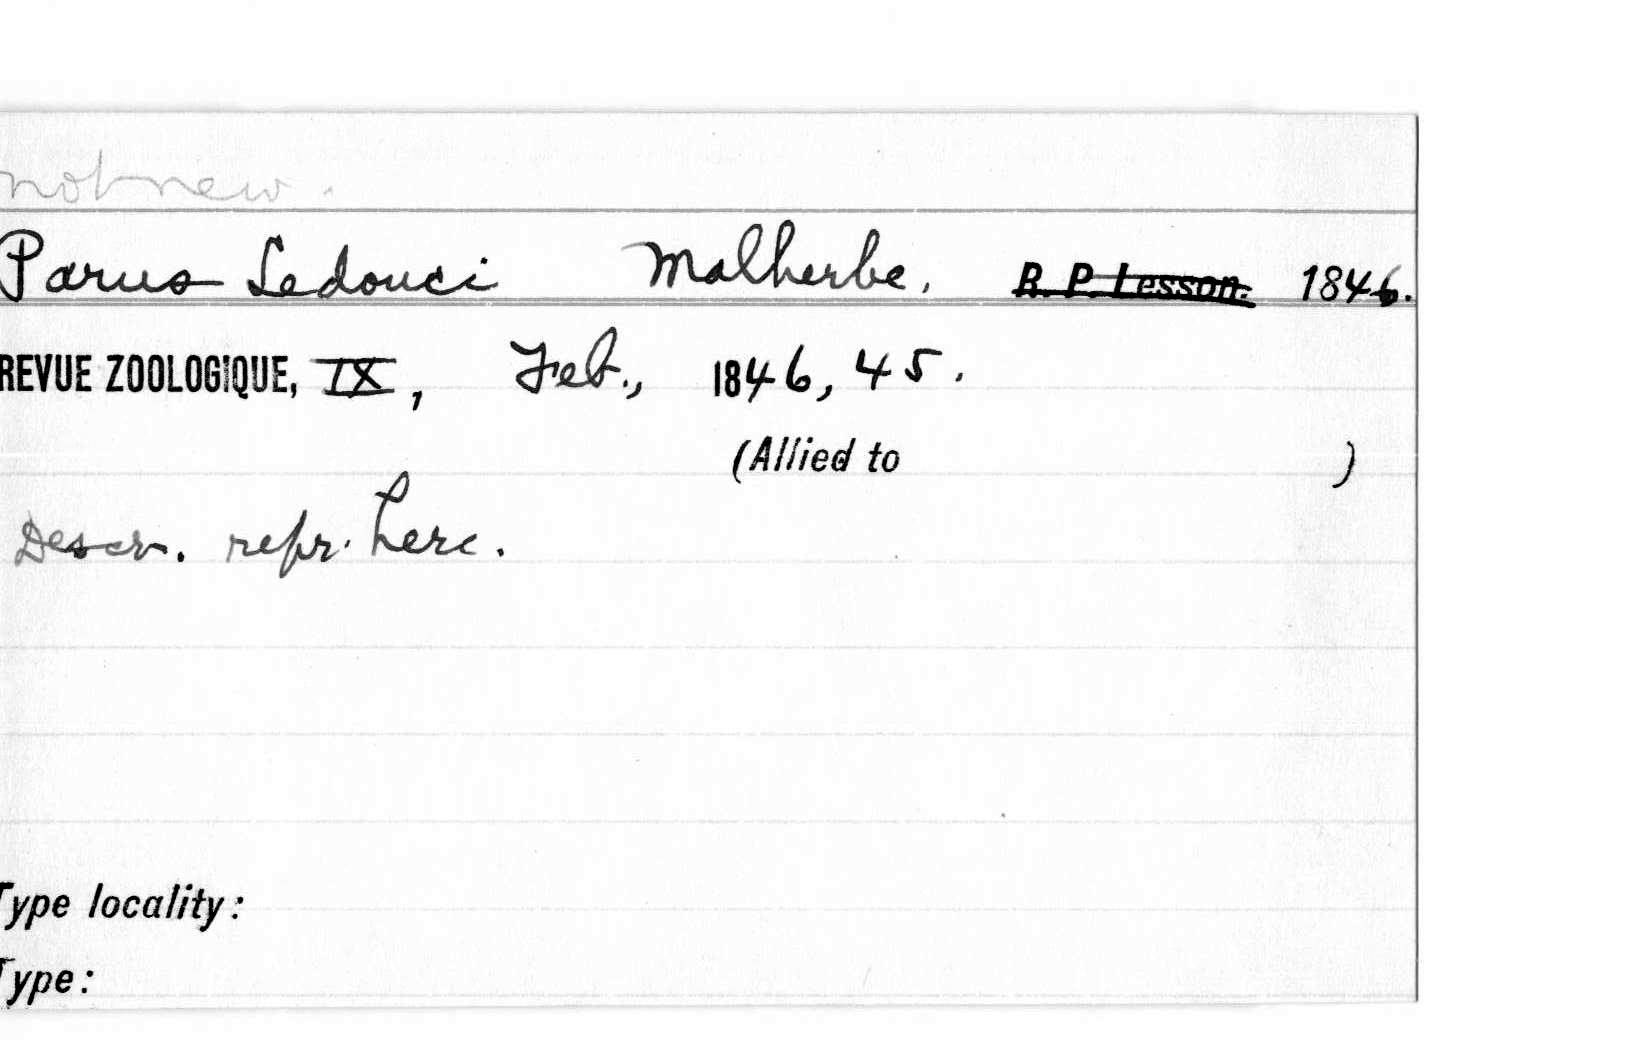 not new.
Parus Ledouci Malherbe. R. P. Lesson. 1846.
REVUE ZOOLOGIQUE, IX, Feb., 1846, 45.
(Allied to )
Descr. repr. here.
Type locality:
Type: